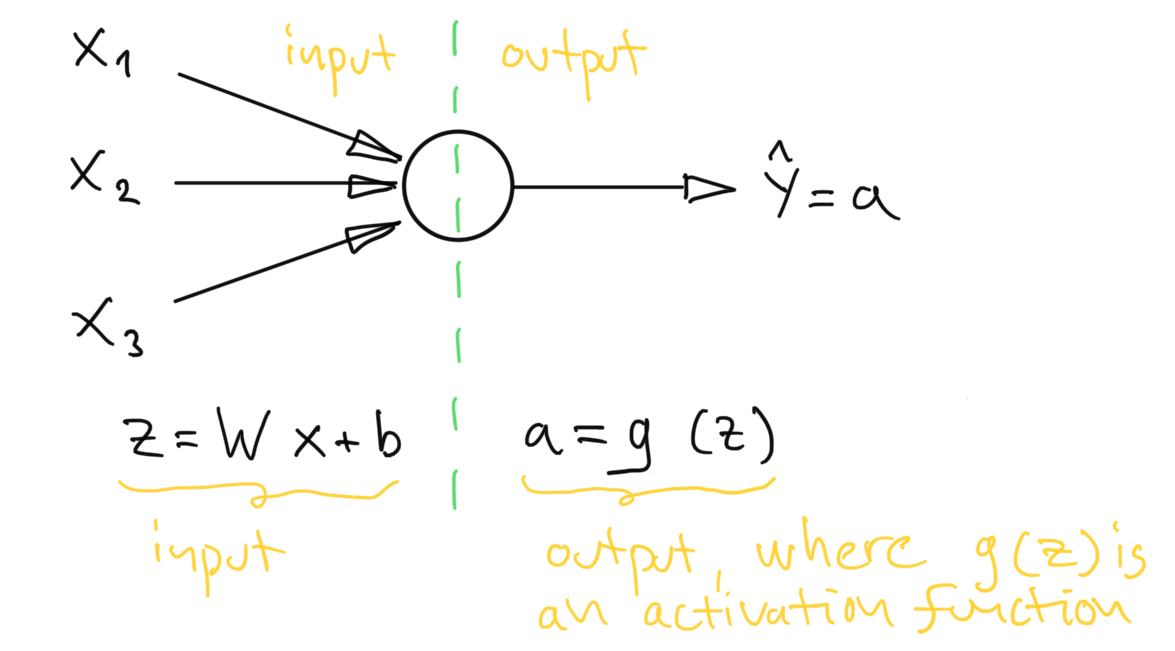 X₁
input output
X₂
Ŷ = a
X₃
z = W x + b
a = g (z)
input
output, where g(z) is
an activation function